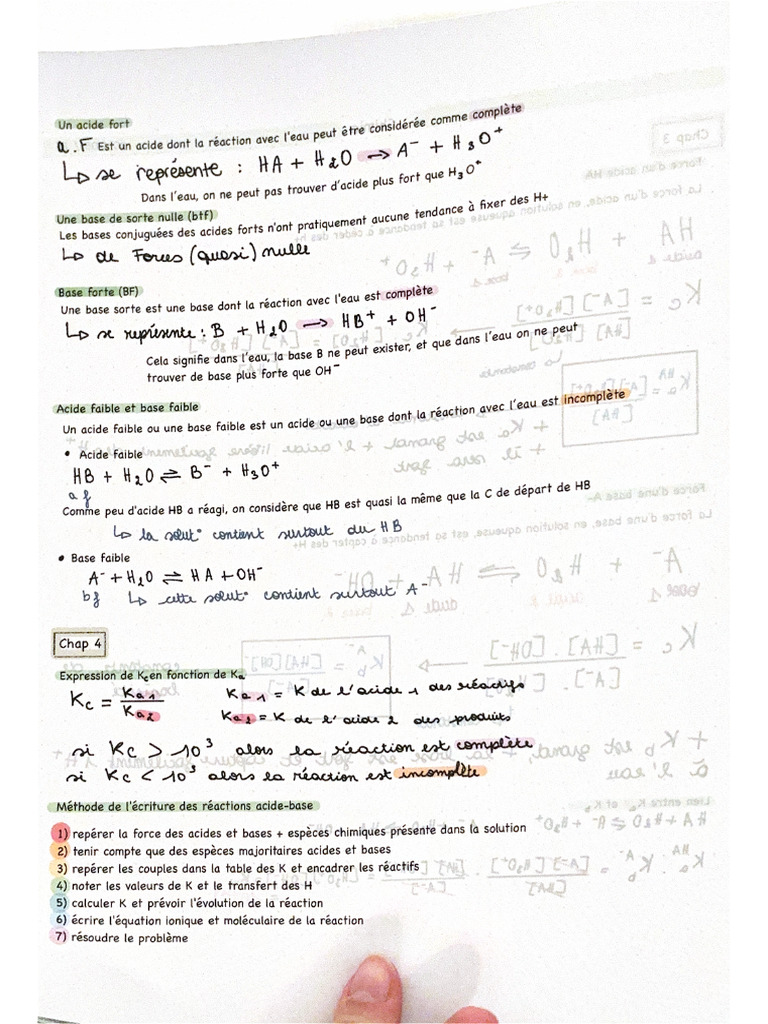 Un acide fort
a.F Est un acide dont la réaction avec l'eau peut être considérée comme complète
↳ se représente : HA + H₂O → A⁻ + H₃O⁺
Dans l'eau, on ne peut pas trouver d'acide plus fort que H₃O⁺
Une base de sorte nulle (btf)
Les bases conjuguées des acides forts n'ont pratiquement aucune tendance à fixer des H+
↳ de Forces (quasi) nulle
Base forte (BF)
Une base sorte est une base dont la réaction avec l'eau est complète
↳ se représente : B + H₂O → HB⁺ + OH⁻
Cela signifie dans l'eau, la base B ne peut exister, et que dans l'eau on ne peut
trouver de base plus forte que OH⁻
Acide faible et base faible
Un acide faible ou une base faible est un acide ou une base dont la réaction avec l'eau est incomplète
• Acide faible
HB + H₂O ⇌ B⁻ + H₃O⁺
a f
Comme peu d'acide HB a réagi, on considère que HB est quasi la même que la C de départ de HB
↳ la solut° contient surtout du HB
• Base faible
A⁻ + H₂O ⇌ HA + OH⁻
b f ↳ cette solut° contient surtout A⁻
Chap 4
Expression de Kc en fonction de Ka
Kc = Ka1 / Ka2
Ka1 = K de l'acide 1 des réactifs
Ka2 = K de l'acide 2 des produits
si Kc > 10³ alors la réaction est complète
si Kc < 10³ alors la réaction est incomplète
Méthode de l'écriture des réactions acide-base
1) repérer la force des acides et bases + espèces chimiques présente dans la solution
2) tenir compte que des espèces majoritaires acides et bases
3) repérer les couples dans la table des K et encadrer les réactifs
4) noter les valeurs de K et le transfert des H
5) calculer K et prévoir l'évolution de la réaction
6) écrire l'équation ionique et moléculaire de la réaction
7) résoudre le problème